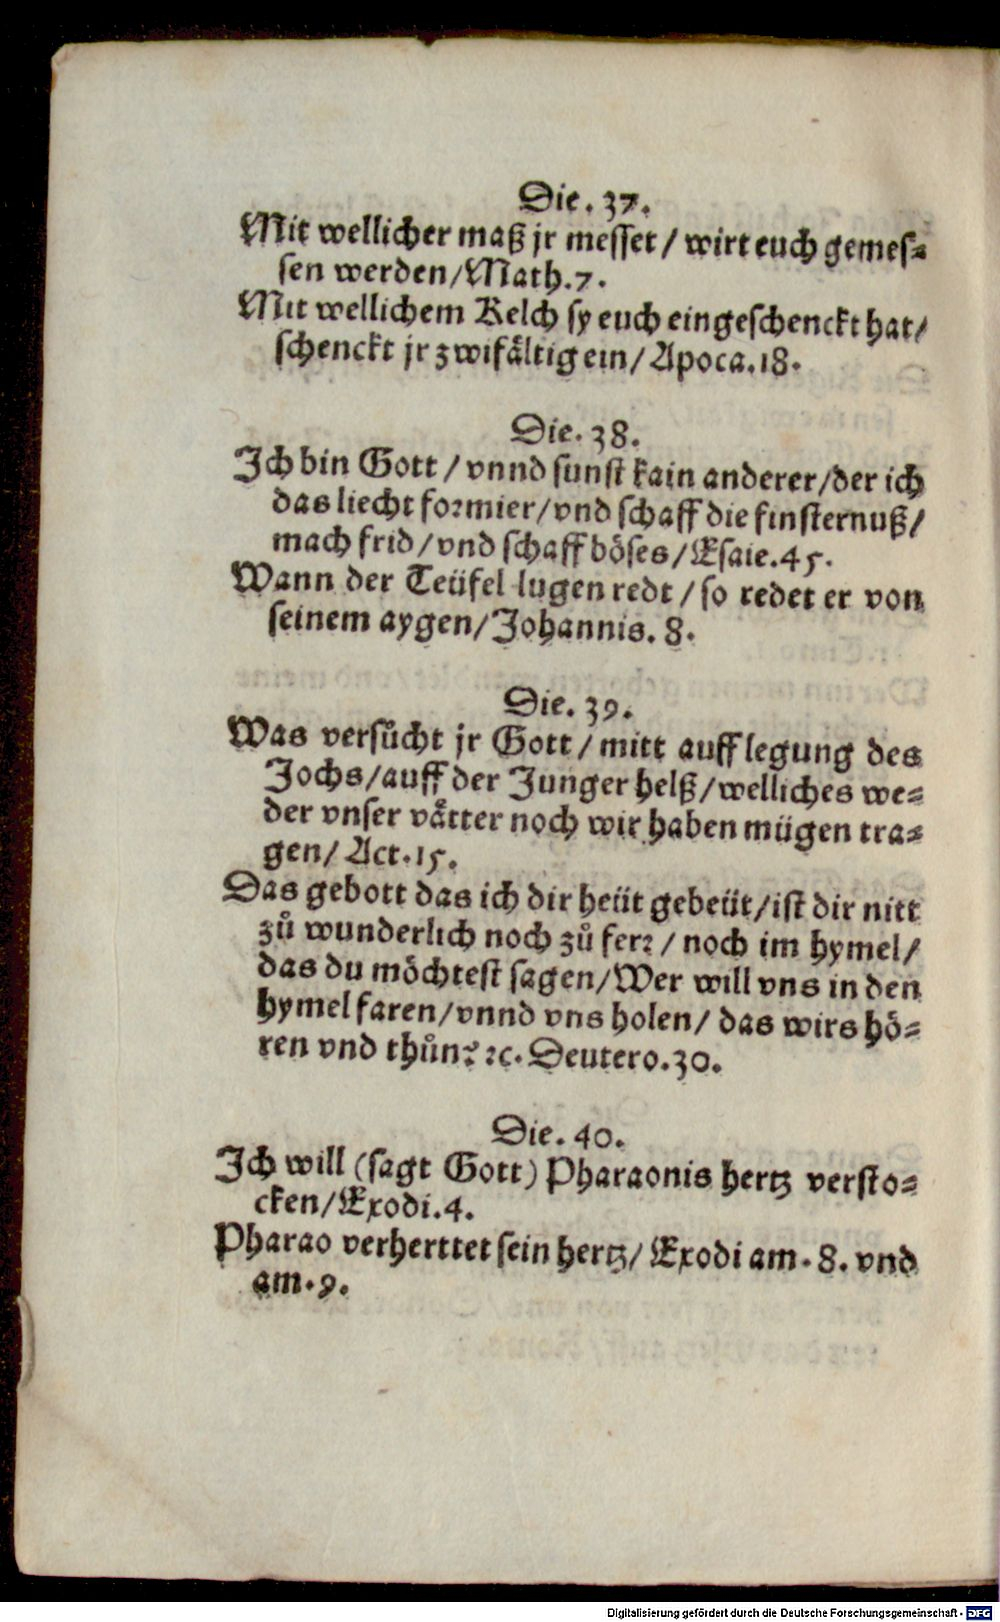 Die. 37.
Mit wellicher maß jr messet / wirt euch gemes⸗
sen werden/Math.7.
Mit wellichem Kelch sy euch eingeschenckt hat/
schenckt jr zwifåltig ein/ Apoca.18.
Die. 38.
Ich bin Gott / vnnd sunst kain anderer/der ich
das liecht formier/vnd schaff die finsternuß/
mach frid/vnd schaff böses/Esaie.45.
Wann der Teüfel lugen redt / so redet er von
seinem aygen/Johannis. 8.
Die. 39.
Was versůcht jr Gott / mitt aufflegung des
Jochs/auff der Junger helß/welliches we⸗
der vnser våtter noch wir haben mügen tra⸗
gen/ Act.15.
Das gebott das ich dir heüt gebeüt/ist dir nitt
zů wunderlich noch zů ferr / noch im hymel/
das du möchtest sagen/Wer will vns in den
hymel faren/vnnd vns holen/ das wirs hö⸗
ren vnd thůn? ꝛc. Deutero.30.
Die. 40.
Ich will (sagt Gott) Pharaonis hertz versto⸗
cken/Exodi.4.
Pharao verherttet sein hertz/ Exodi am. 8. vnd
am.9.
Digitalisierung gefördert durch die Deutsche Forschungsgemeinschaft - DFG